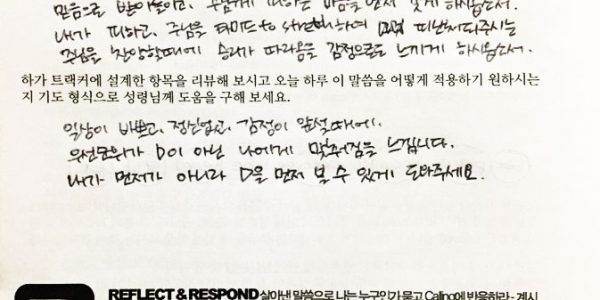 믿음으로 받아들이고, 주님께 피하는 마음을 먼저 갖게 하시옵소서.
내가 피하고, 주님을 하여 피난처 되주시는
주님을 찬양할때에 승리가 따라옴을 감정으로도 느끼게 하시옵소서.
하가 트랙커에 설계한 항목을 리뷰해 보시고 오늘 하루 이 말씀을 어떻게 적용하기 원하시는
지 기도 형식으로 성령님께 도움을 구해 보세요.
일상이 바쁘고, 정신없고, 감정이 앞설때에.
우선순위가 D이 아닌 나에게 맞춰짐을 느낍니다.
내가 먼저가 아니라 D을 먼저 볼 수 있게 도와주세요.
REFLECT & RESPOND 살아낸 말씀으로 나는 누구인가 묻고 Calling에 반응하라 - 계시